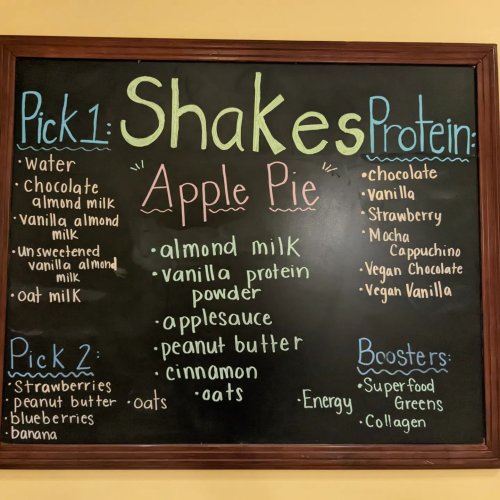 Shakes
Pick 1:
· water
· Chocolate
almond milk
· vanilla almond
milk
· unsweetened
vanilla almond
milk
· oat milk
Pick 2:
· Strawberries
· peanut butter
· blueberries
· banana
· oats
"Apple Pie"
· almond milk
· vanilla protein
powder
· applesauce
· peanut butter
· cinnamon
· oats
Protein:
· chocolate
· vanilla
· Strawberry
· Mocha
Cappuchino
· Vegan Chocolate
· Vegan Vanilla
Boosters:
· Superfood
Greens
· Collagen
· Energy